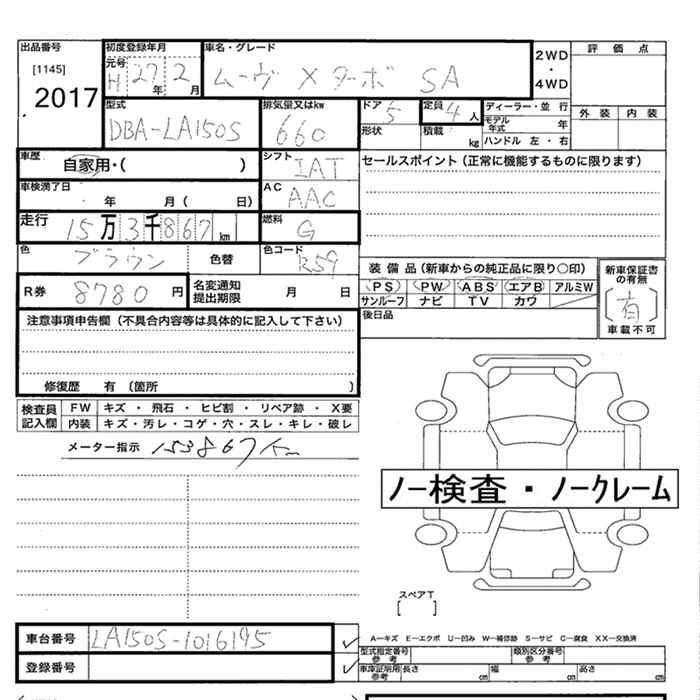 出品番号 初度登録年月 車名・グレード
[1145] 元号 H 27年 2月 ムーヴ Xターボ SA
2017
2WD・4WD 評価点
外装 内装
型式 排気量又はkw ドア 5 定員 4人 ディーラー・並行
DBA-LA150S 660 形状 積載 kg モデル年式 年
ハンドル 左・右
車歴 自家用・( ) シフト IAT セールスポイント(正常に機能するものに限ります)
車検満了日 年 月( 日) AC AAC
走行 15万3千867km 燃料 G
色 ブラウン 色替 色コード R59
装備品(新車からの純正品に限り○印) 新車保証書の有無
R券 8780円 名変通知提出期限 月 日
PS PW ABS エアB アルミW [有]
サンルーフ ナビ TV カワ 車載不可
注意事項申告欄(不具合内容等は具体的に記入して下さい) 後日品
修復歴 有 〔箇所 〕
検査員記入欄 FW キズ・飛石・ヒビ割・リペア跡・X要
内装 キズ・汚レ・コゲ・穴・スレ・キレ・破レ
メーター指示 153867km
ノー検査・ノークレーム
スペアT
[ ]
車台番号 LA150S-1016195
A―キズ E―エクボ U―凹み W―補修跡 S―サビ C―腐食 XX―交換済
型式指定番号 参考 類別区分番号 参考
登録番号 車庫証明用参考 長さ cm 幅 cm 高さ cm